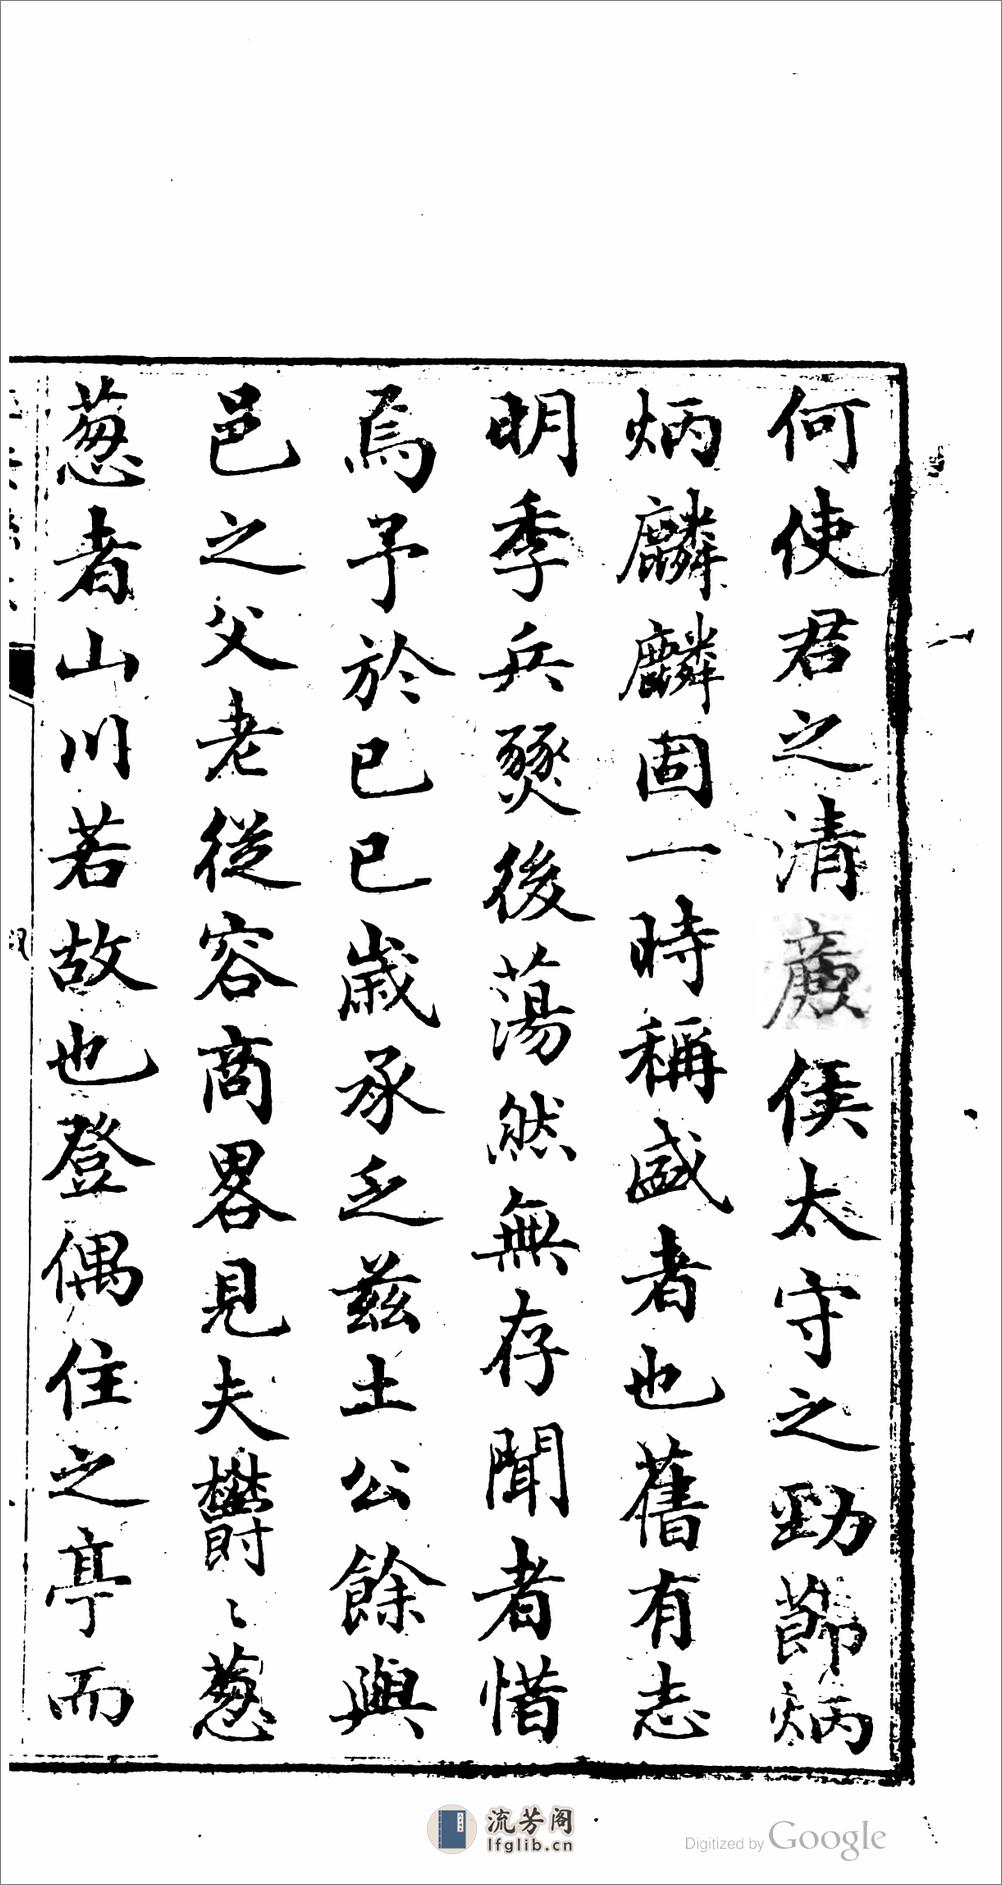 何使君之清廉侯太守之勁節炳
炳麟麟固一時稱盛者也舊有志
明季兵燹後蕩然無存聞者惜
焉予於已巳歲承乏兹土公餘與
邑之父老從容商畧見夫欝〻葱
葱者山川若故也登偶住之亭而
流芳阁
lfglib.cn
Digitized by Google